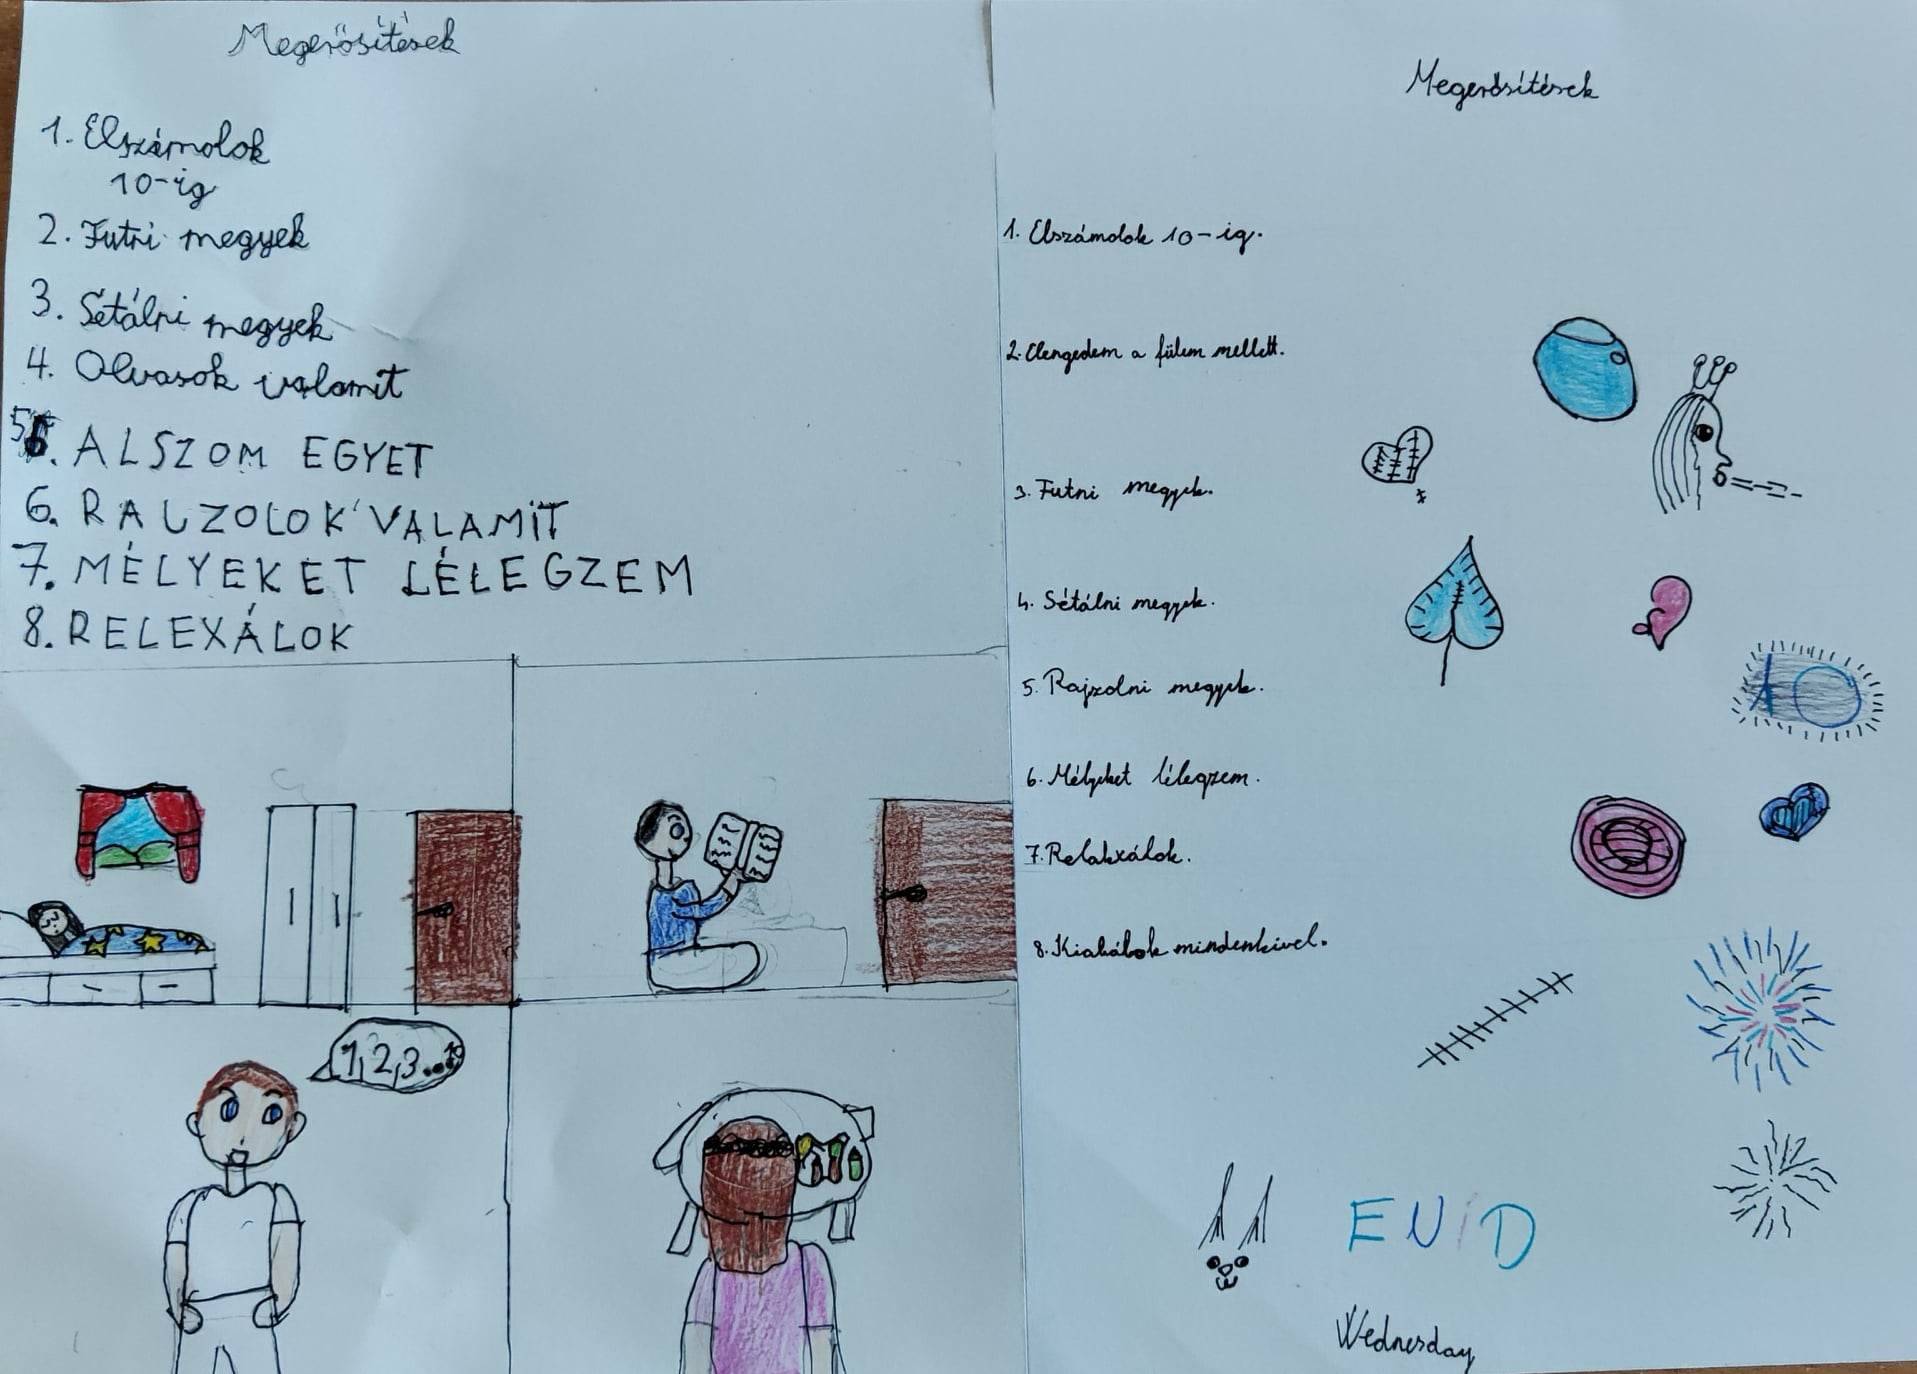 Megerősítések
1. Elszámolok
10-ig
2. Futni megyek
3. Sétálni megyek
4. Olvasok valamit
5. ALSZOM EGYET
6. RAUZOLOK VALAMIT
7. MÉLYEKET LÉLEGZEM
8. RELEXÁLOK
1,2,3...10
Megerősítések
1. Elszámolok 10-ig.
2. Elengedem a fülem mellett.
3. Futni megyek.
4. Sétálni megyek.
5. Rajzolni megyek.
6. Mélyeket lélegzem.
7. Relakxálok.
8. Kiabálok mindenkivel.
ENiD
Wednesday